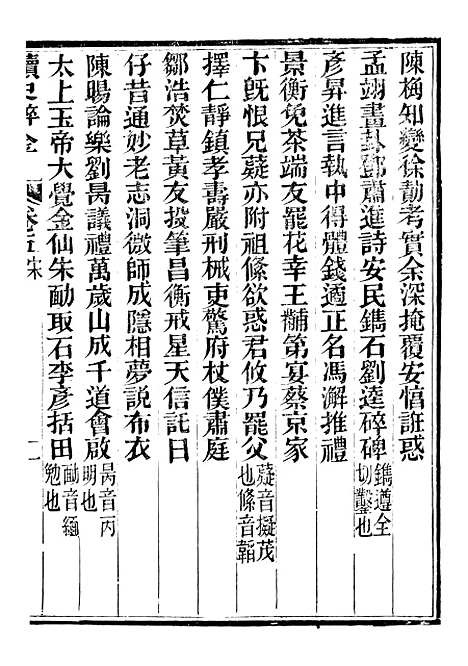 陳桷知變徐勣考實余深掩覆安惇誑惑
孟翊畫卦鄧肅進詩安民鐫石劉逵碎碑鐫遵全切鑿也
彥昇進言執中得體錢遹正名馮澥推禮
景衡免茶端友罷花幸王黼第宴蔡京家
卞旣恨兄薿亦附祖絛欲惑君攸乃罷父薿音擬茂也絛音韜
擇仁靜鎮孝壽嚴刑械吏驚府杖僕肅庭
鄒浩焚草黃友投筆昌衡戒星天信託日
仔昔通妙老志洞微師成隱相夢説布衣
陳暘論樂劉昺議禮萬歲山成千道會啟昺音丙明也
太上玉帝大覺金仙朱勔取石李彥括田勔音緬勉也
讀史碎金 卷五 宋 二